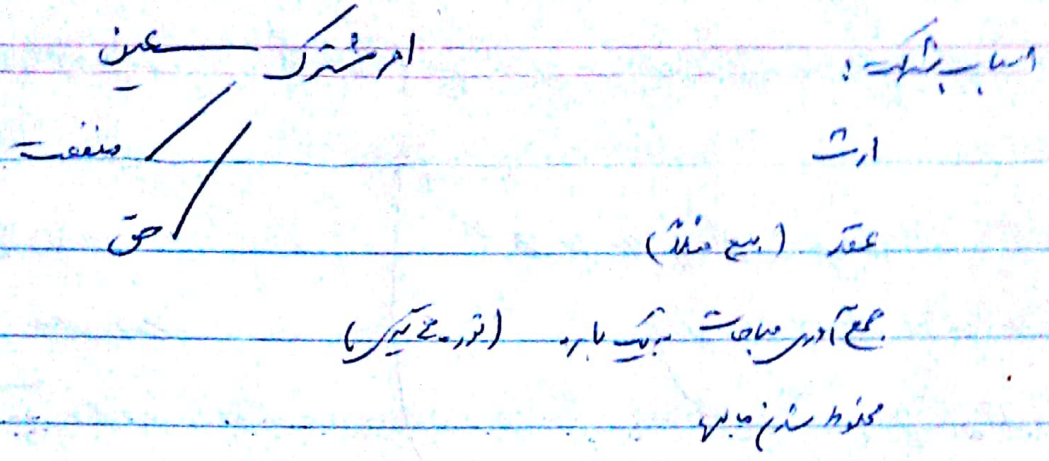 اسباب شرکت: امر مشترک عین
ارث منفعت
عقد (بیع مثلاً) حق
جمع آوری مباحات به یک باره (تور ماهیگیری)
مخلوط شدن مالها